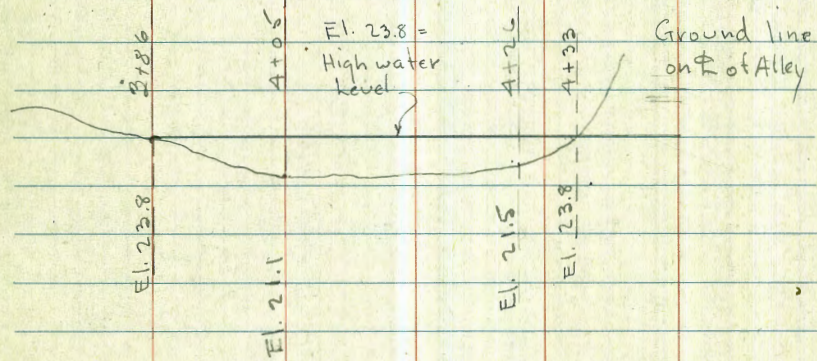 3+86
4+05
El. 23.8 =
High water
Level
4+26
4+33
Ground line
on ℄ of Alley
El. 23.8
El. 21.1
El. 21.5
El. 23.8